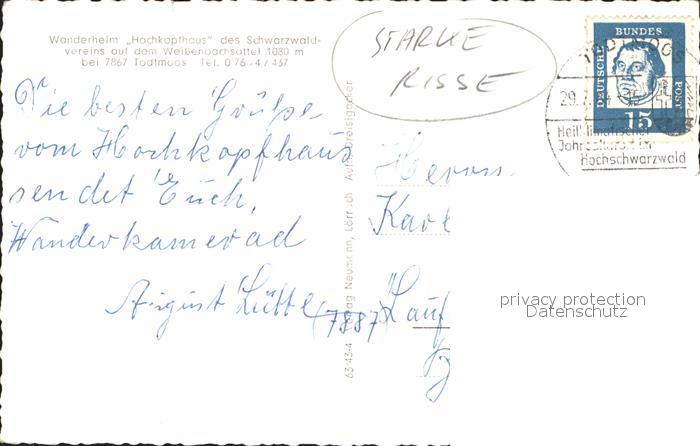 Wanderheim „Hochkopfhaus" des Schwarzwald-
vereins auf dem Weißenbachsattel 1080 m
bei 7867 Todtmoos Tel. 0 76-4 / 457
STARKE
RISSE
DEUTSCHE
BUNDES
POST
15
TODTMOOS
29.7.
Heilklimatischer
Jahreskurort im
Hochschwarzwald
Die besten Grüße
vom Hochkopfhaus
sendet Euch,
Wanderkamerad
August Lütte
Herrn
Karl
(7887) Lauf
63-43-4 Verlag Neumann, Lörrach
privacy protection
Datenschutz